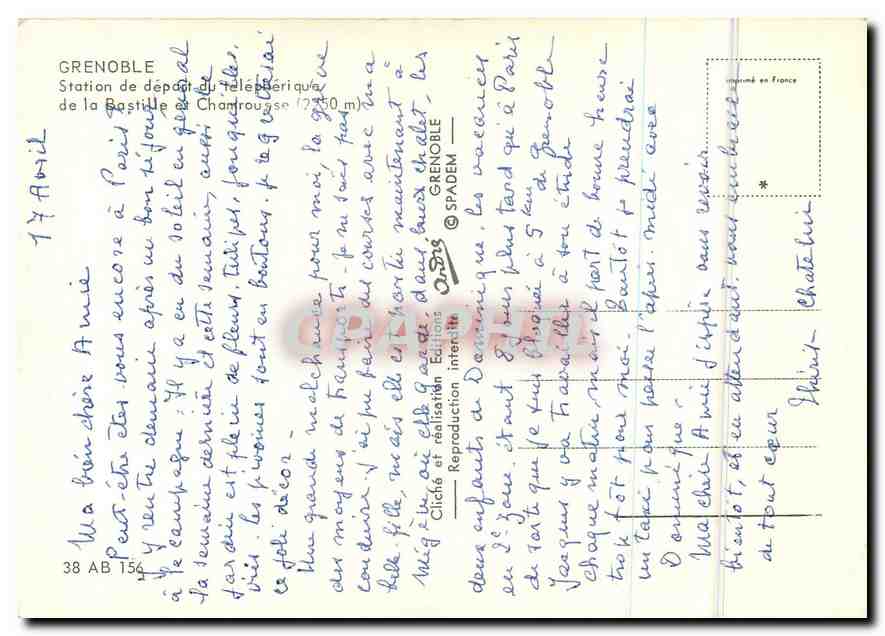 GRENOBLE
Station de départ du téléphérique
de la Bastille et Chamrousse (2250 m)
imprimé en France
*
17 Avril
Ma bien chère Amie
Peut-être êtes vous encore à Paris ?
J'y rentre demain après un bon séjour
à la campagne. Il y a eu du soleil en général
la semaine dernière et cette semaine, aussi le
jardin est plein de fleurs, tulipes, jonquilles,
les pivoines sont en boutons. Je regretterai
ce joli décor -
Une grande malchance pour moi, la grève
des moyens de transports. Je ne sais pas
conduire. J'ai pu faire des courses avec ma
belle-fille, mais elle est partie maintenant à
Megève où elle garde, dans leurs chalet, les
deux enfants de Dominique, les vacances
en 2e zone étant 8 jours plus tard qu'à Paris
de sorte que je suis bloquée à 5 km de Grenoble
Jacques y va travailler à son étude
chaque matin mais il part de bonne heure
trop tôt pour moi. Tantôt je prendrai
un taxi pour passer l'après-midi avec
Dominique.
Ma chère Amie j'espère vous revoir
bientôt, et en attendant, vous embrasse
de tout cœur
Chatelin
38 AB 156
Cliché et réalisation Editions André GRENOBLE
Reproduction interdite © SPADEM
CPARAMA